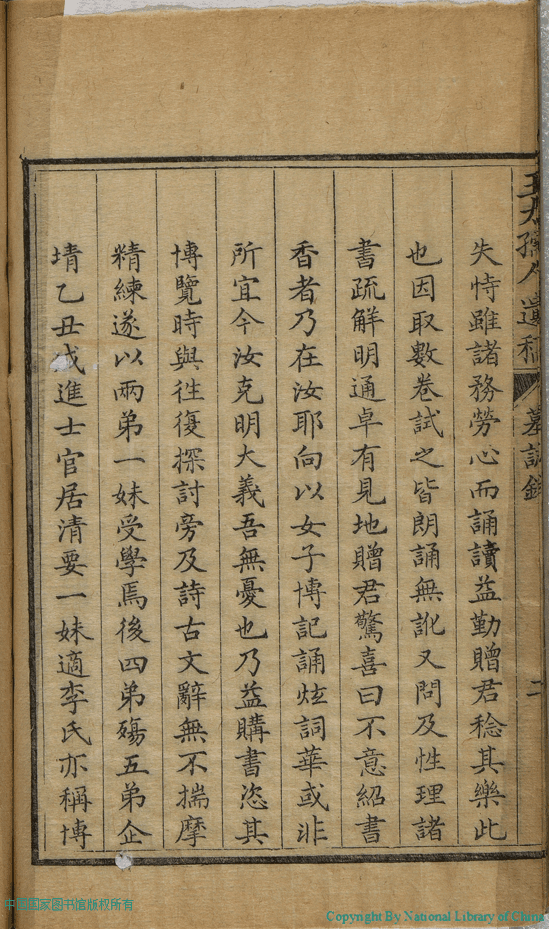 王太孺人遺稿 墓誌錄 二
失恃雖諸務勞心而誦讀益勤贈君稔其樂此
也因取數卷試之皆朗誦無訛又問及性理諸
書疏解明通卓有見地贈君驚喜曰不意紹書
香者乃在汝耶向以女子博記誦炫詞華或非
所宜今汝克明大義吾無憂也乃益購書恣其
博覽時與往復探討旁及詩古文辭無不揣摩
精練遂以兩弟一妹受學焉後四弟殤五弟企
堉乙丑成進士官居清要一妹適李氏亦稱博
中国国家图书馆版权所有
Copyright By National Library of China